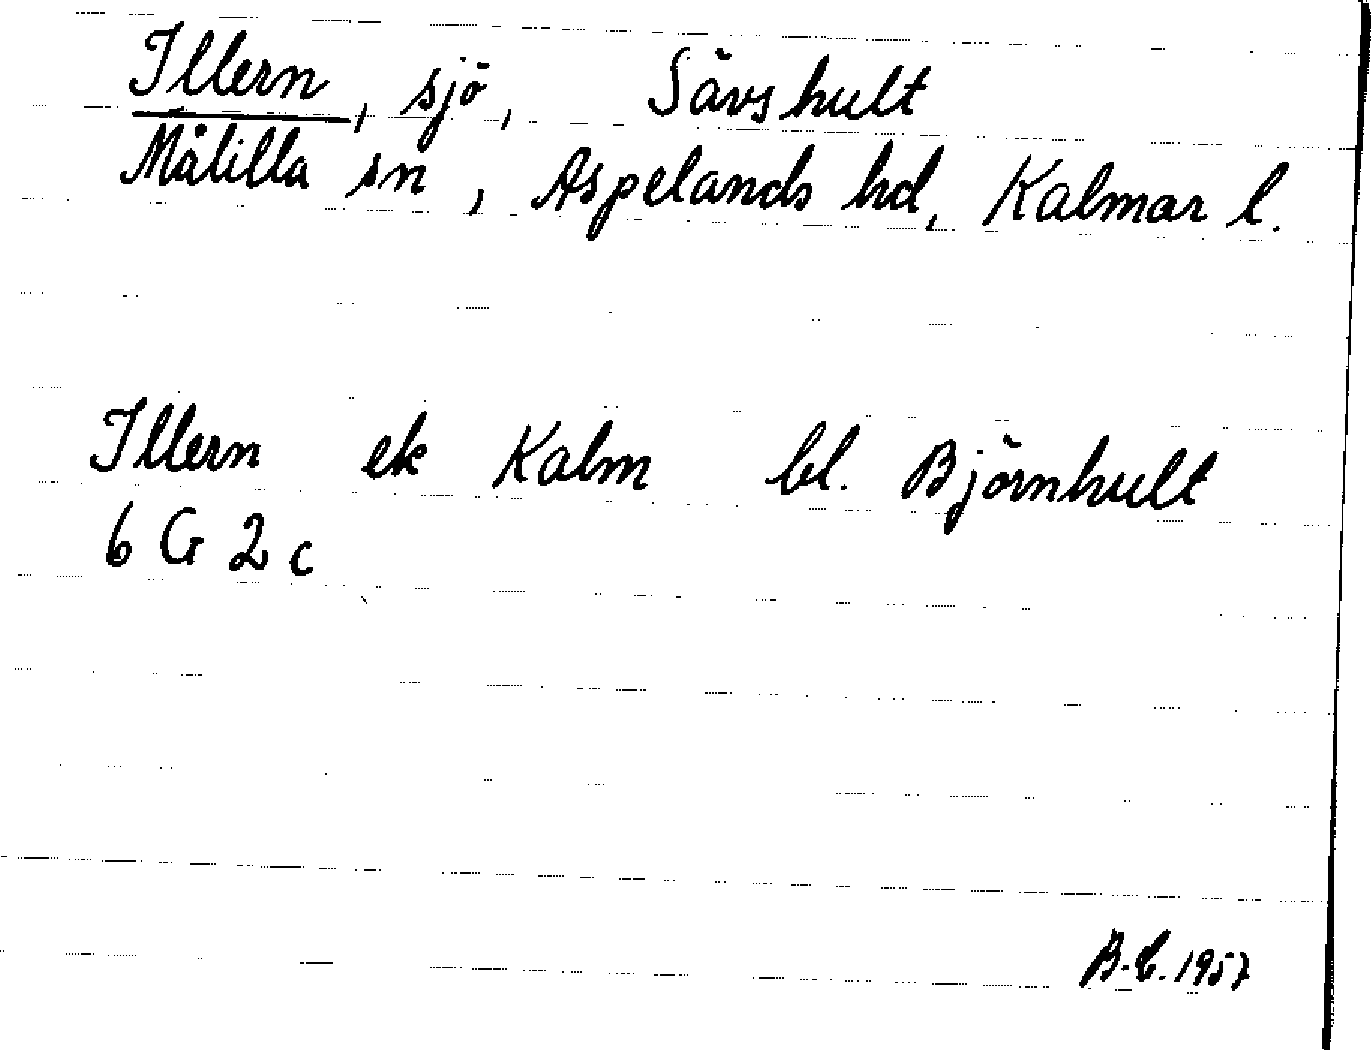 Illern, sjö, Sävshult
Målilla sn, Aspelands hd, Kalmar l.
Illern ek Kalm bl. Björnhult
6 G 2 c
1957